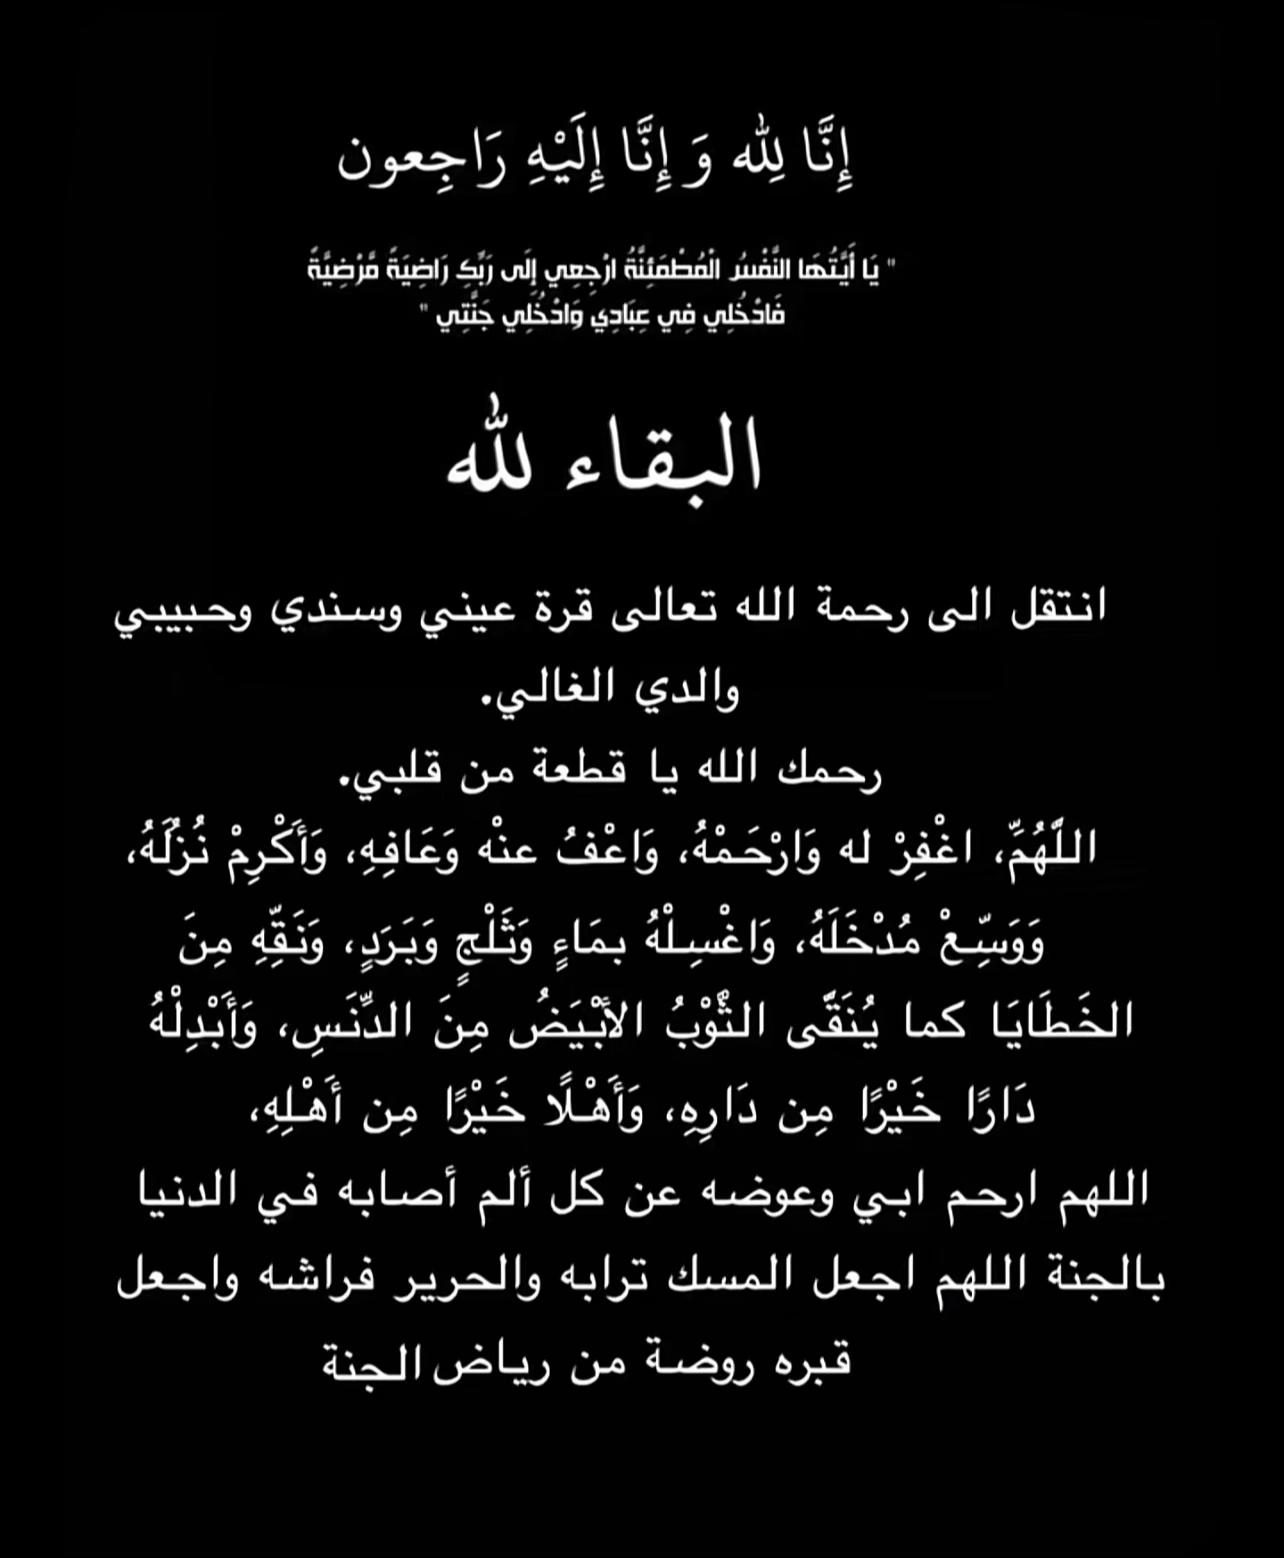 إِنَّا لِلّٰه وَ إِنَّا إِلَيْهِ رَاجِعون
" يَا أَيَّتُهَا النَّفْسُ الْمُطْمَئِنَّةُ ارْجِعِي إِلَى رَبِّكِ رَاضِيَةً مَّرْضِيَّةً
فَادْخُلِي فِي عِبَادِي وَادْخُلِي جَنَّتِي "
البقاء للّٰه
انتقل الى رحمة الله تعالى قرة عيني وسندي وحبيبي
والدي الغالي.
رحمك الله يا قطعة من قلبي.
اللَّهُمِّ، اغْفِرْ له وَارْحَمْهُ، وَاعْفُ عنْه وَعَافِهِ، وَأَكْرِمْ نُزُلَهُ،
وَوَسِّعْ مُدْخَلَهُ، وَاغْسِلْهُ بمَاءٍ وَثَلْجٍ وَبَرَدٍ، وَنَقِّهِ مِنَ
الخَطَايَا كما يُنَقَّى الثَّوْبُ الأبْيَضُ مِنَ الدَِّنَسِ، وَأَبْدِلْهُ
دَارًا خَيْرًا مِن دَارِهِ، وَأَهْلًا خَيْرًا مِن أَهْلِهِ،
اللهم ارحم ابي وعوضه عن كل ألم أصابه في الدنيا
بالجنة اللهم اجعل المسك ترابه والحرير فراشه واجعل
قبره روضة من رياض الجنة